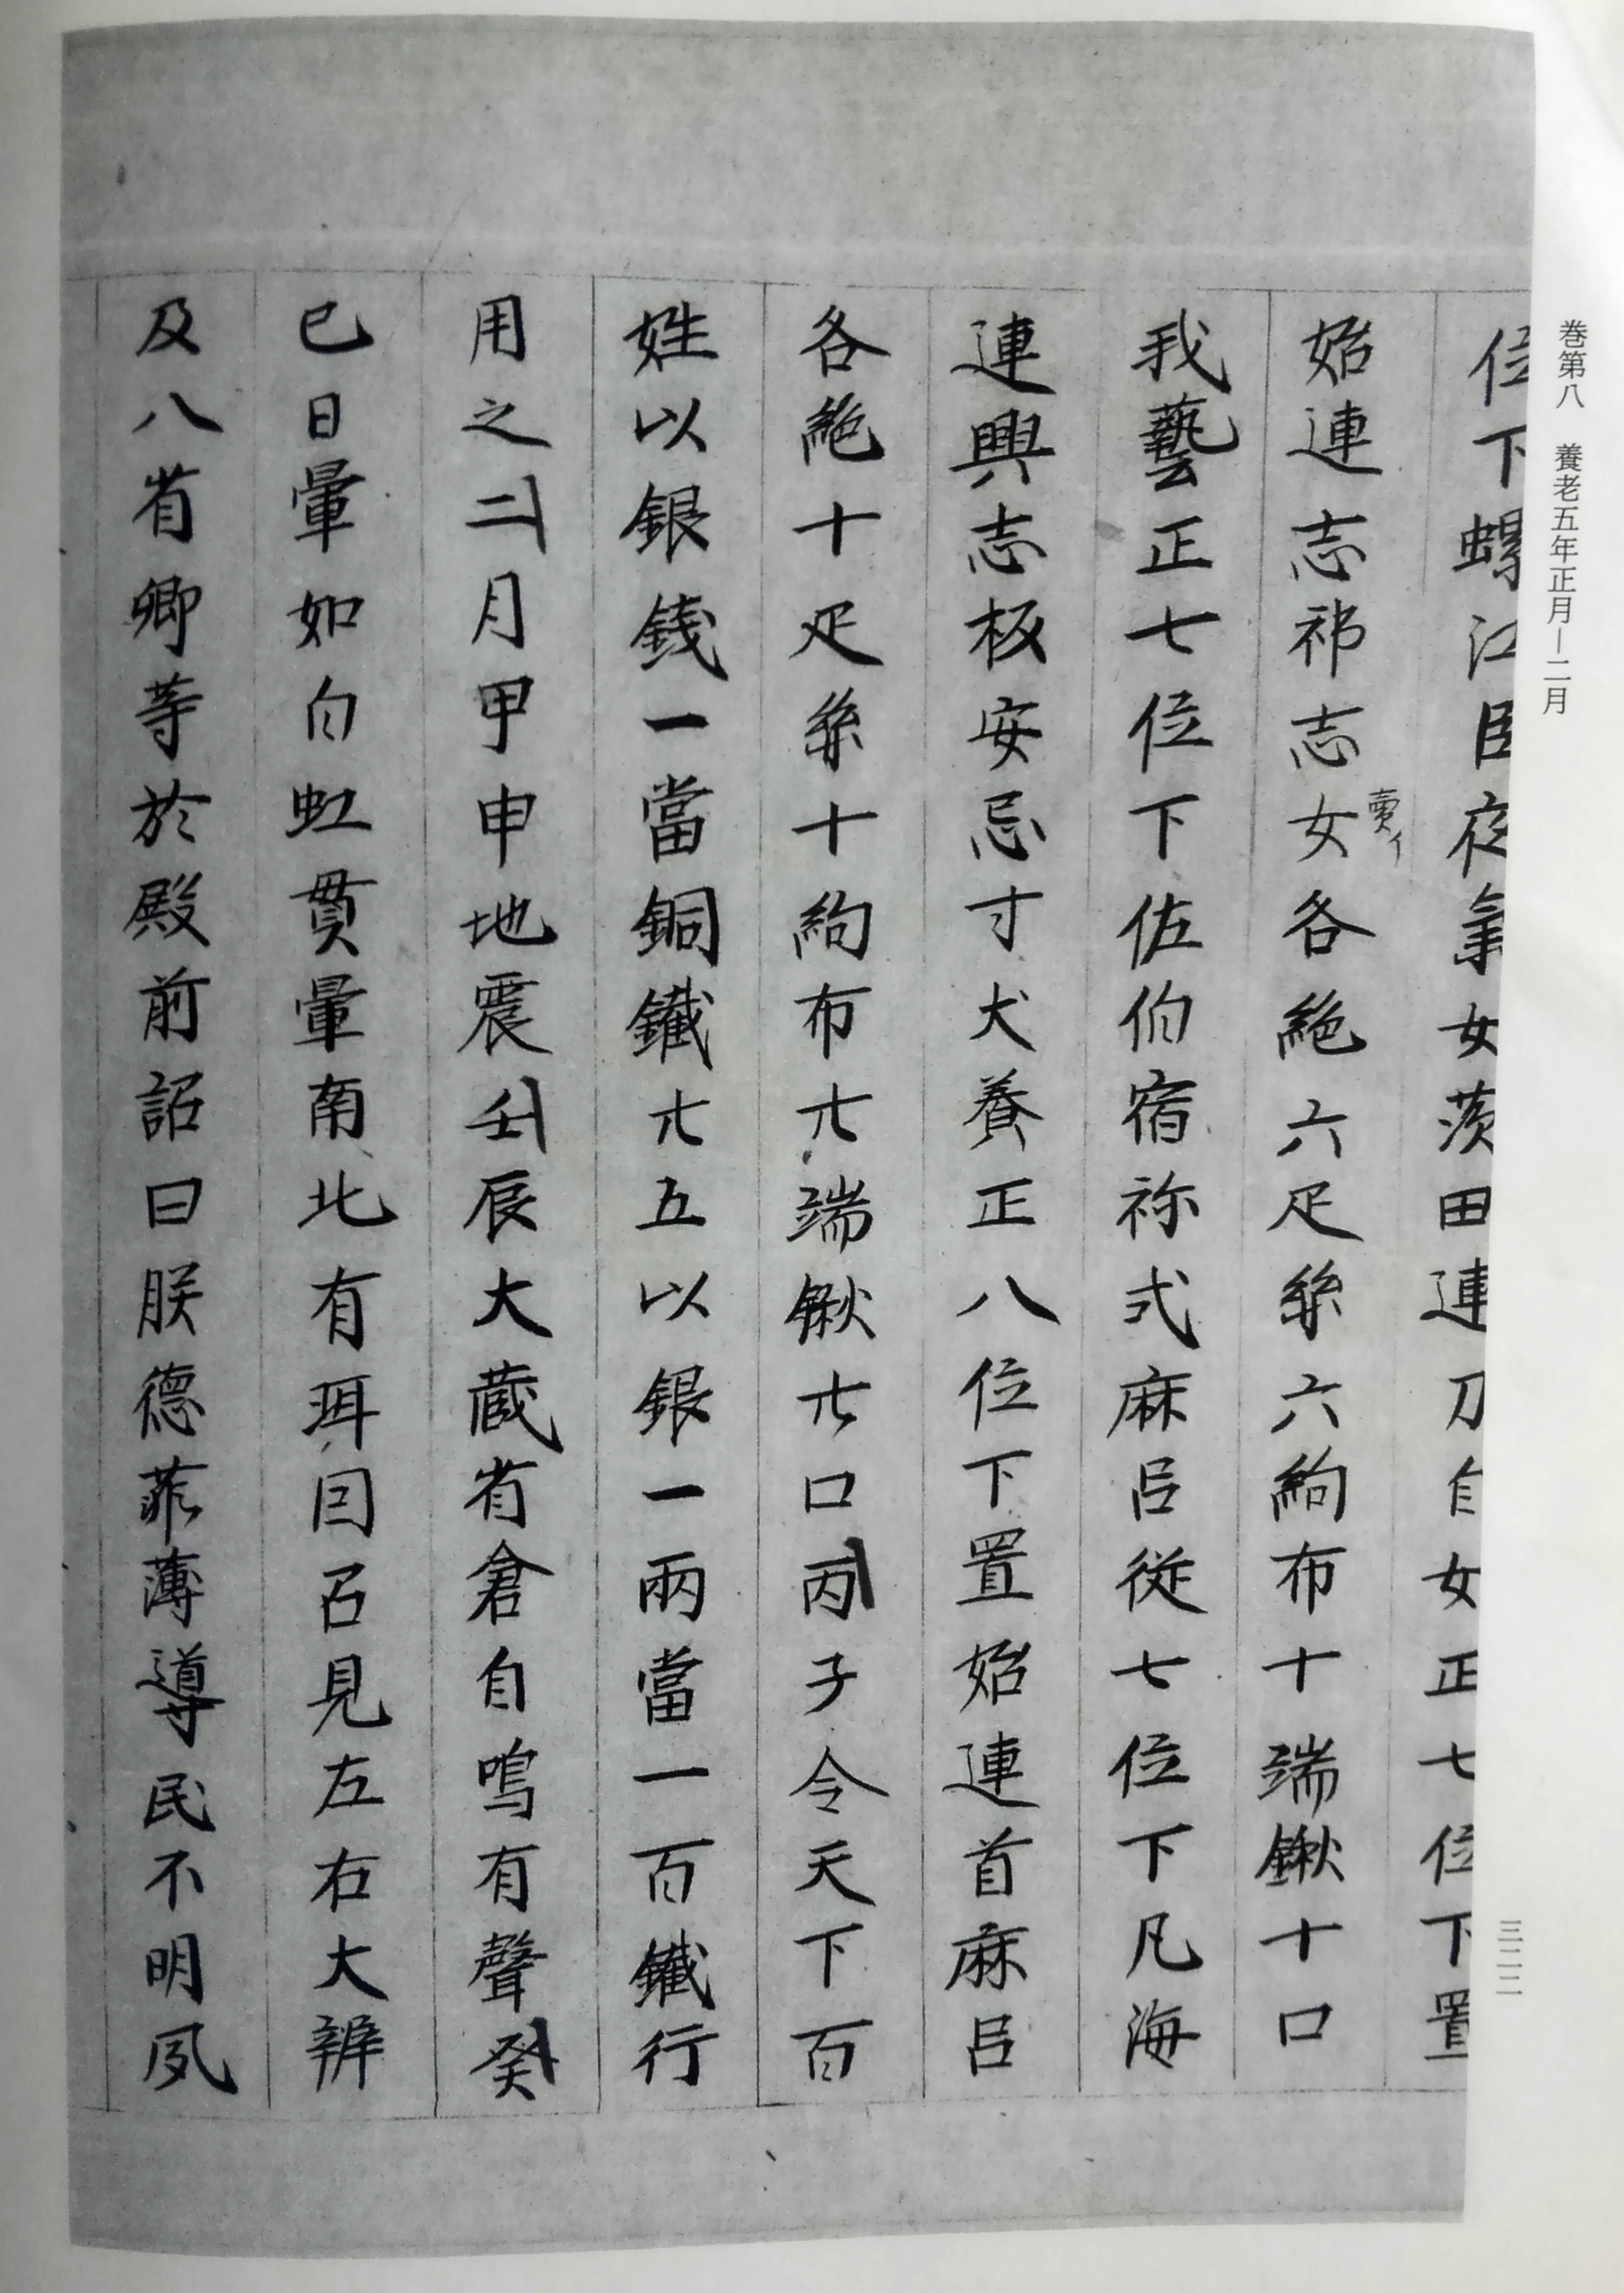 巻第八　養老五年正月―二月
位下螺江臣夜氣女茨田連刀自女正七位下置
始連志祁志女各絁六疋絲六絇布十端鍬十口
賣イ
我藝正七位下佐伯宿祢式麻呂従七位下凡海
連興志板安忌寸犬養正八位下置始連首麻呂
各絁十疋絲十絇布廿端鍬廿口丙子令天下百
姓以銀銭一當銅鐵廿五以銀一兩當一百鐵行
用之二月甲申地震壬辰大蔵省倉自鳴有聲癸
巳日暈如白虹貫暈南北有珥囙召見左右大辨
及八省卿等於殿前詔曰朕德菲薄導民不明夙
三二二